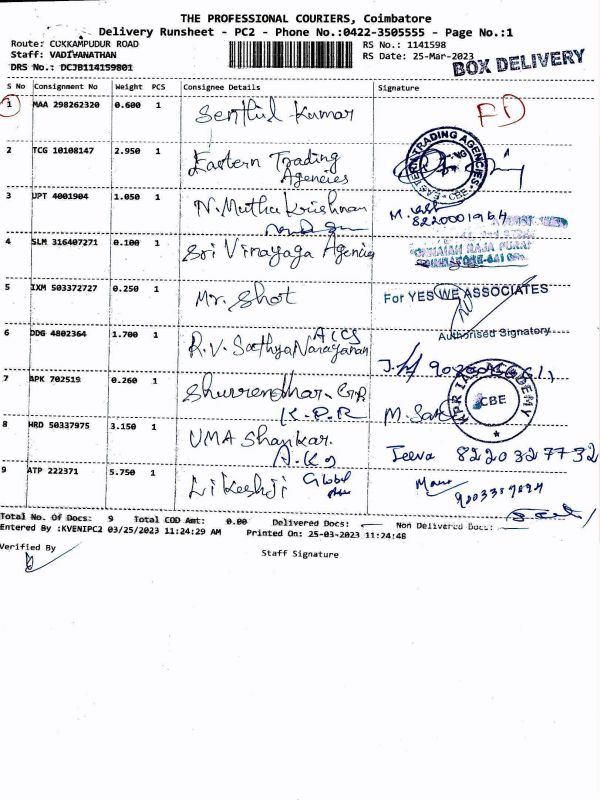 THE PROFESSIONAL COURIERS, Coimbatore
Delivery Runsheet - PC2 - Phone No.:0422-3505555 - Page No.:1
Route: COKKAMPUDUR ROAD RS No.: 1141598
Staff: VADIVANATHAN RS Date: 25-Mar-2023
DRS No.: DCJB114159801 BOX DELIVERY
S No Consignment No Weight PCS Consignee Details Signature
1 MAA 298262320 0.600 1 Senthil Kumar FD
2 TCG 10108147 2.950 1 Eastern Trading
Agencies
EASTERN TRADING AGENCIES CBE
3 UPT 4001904 1.050 1 N. Muthu Krishnan
4 SLM 316407271 0.100 1 Sri Vinayaga Agencies
5 IXM 503372727 0.250 1 Mr. Shot
For YES WE ASSOCIATES
Authorised Signatory
6 DDG 4802364 1.700 1 R.V. Sathya Narayanan
7 APK 702519 0.260 1
K.P.R
KPR IAS ACADEMY CBE
8 HRD 50337975 3.150 1 UMA Shankar. Jeeva 8220327732
9 ATP 222371 5.750 1 Likeshji Global
Total No. Of Docs: 9 Total COD Amt: 0.00 Delivered Docs: Non Delivered Docs:
Entered By :KVENIPC2 03/25/2023 11:24:29 AM Printed On: 25-03-2023 11:24:48
Verified By Staff Signature